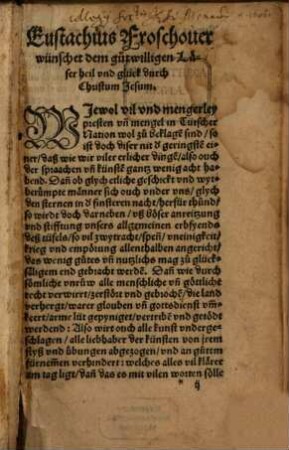 Eustachius Froschouer
wünschet dem gůtwilligen Lä-
ser heil vnd glück durch
Christum Jesum.
WJewol vil vnd mengerley
presten vñ mengel in Tütscher
Nation wol zů beklagē sind / so
ist doch diser nit d geringste ei-
ner / daß wir wie viler erlicher dingē / also ouch
der spraachen vñ künstē gantz wenig acht ha-
bend. Dañ ob glych etliche geschickt vnd wyt
berümpte männer sich ouch vnder vns / glych
den sternen in d finsteren nacht / herfür thůnd /
so wirdt doch darneben / vß böser anreitzung
vnd stifftung vnsers allgemeinen erbfyends
deß tüfels / so vil zwytracht / speñ / vneinigkeit /
krieg vnd empörung allenthalben angericht /
das wenig gůtes vñ nutzliches mag zů glück-
säligem end gebracht werdē. Dañ wie durch
sömliche vnrůw alle menschliche vñ göttliche
recht verwirrt / zerstört vnd gebrochē / die land
verhergt / warer glouben vñ gottsdienst vm-
keert / arme lüt gepyniget / vertribē vnd getödt
werdend: Also wirt ouch alle kunst vnderge-
schlagen / alle liebhaber der künsten von jrem
flyß vnd übungen abgezogen / vnd an gůtem
fürnemmen verhindert: welches alles vil klärer
am tag ligt / dañ das es mit vilen worten sölle
ij